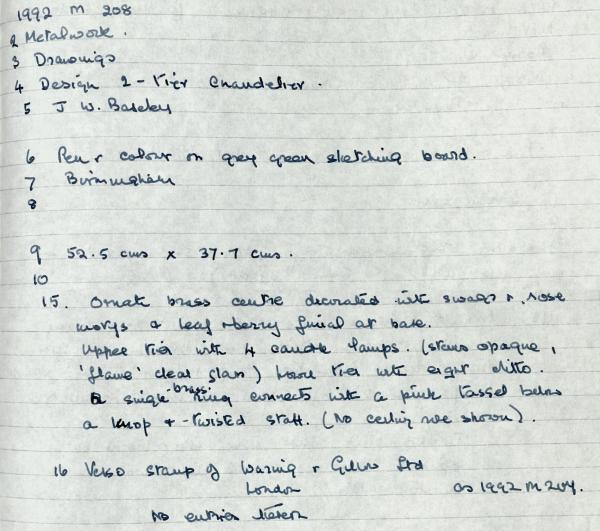 1992 M 208
2 Metalwork.
3 Drawings
4 Design 2-tier Chandelier.
5 J W. Baseley
6 Pen & colour on grey green sketching board.
7 Birmingham
8
9 52.5 cms x 37.7 cms.
10
15. Ornate brass centre decorated with swags & rose
motifs & leaf & berry finial at base.
Upper tier with 4 candle lamps. (stems opaque,
'flame' clear glass) Lower tier with eight ditto.
A single brass ring connects with a pink tassel below
a knop & twisted staff. (No ceiling rose shown).
16 Verso stamp of Waring & Gillow Ltd
London as 1992 M 207.
No entries